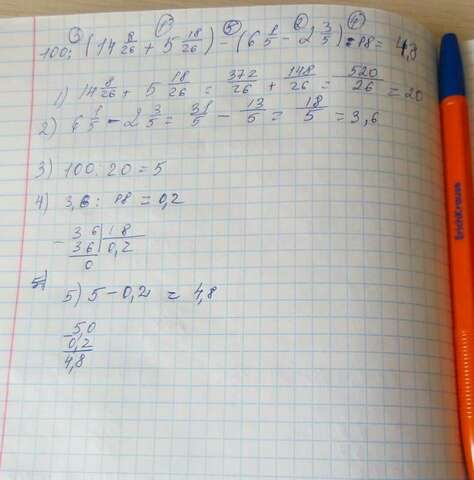 ③ ① ⑤ ② ④
100 : (14 8/26 + 5 18/26) - (6 1/5 - 2 3/5) : 18 = 4,8
1) 14 8/26 + 5 18/26 = 372/26 + 148/26 = 520/26 = 20
2) 6 1/5 - 2 3/5 = 31/5 - 13/5 = 18/5 = 3,6
3) 100 : 20 = 5
4) 3,6 : 18 = 0,2
- 3 6 | 1 8
3 6 | 0,2
0
5)
5) 5 - 0,2 = 4,8
- 5,0
0,2
4,8
ErichKrause